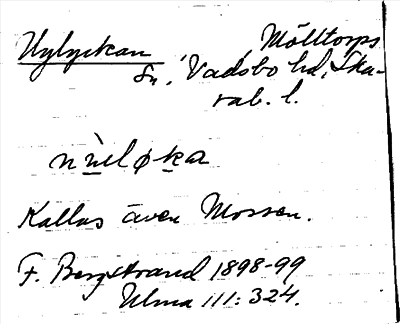 Nylyckan Mölltorps
Sn, Vadsbo hd, Ska-
rab. l.
Kallas även Mossen.
F. Bergstrand 1898-99
Ulma 111: 324.